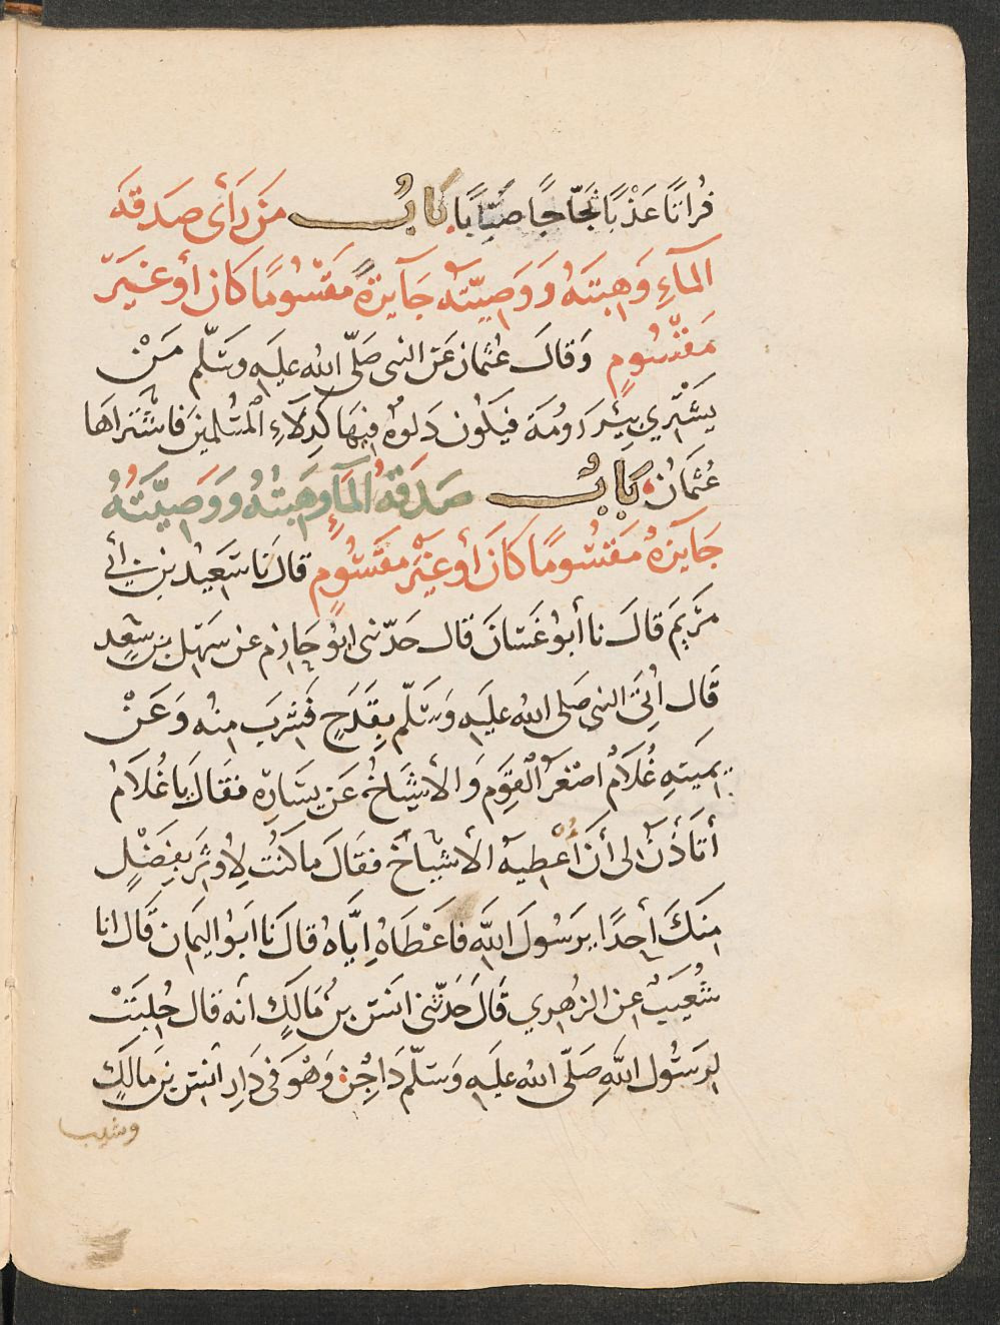 فُرَاتًا عَذْبًا ثَجَّاجًا صَبَّابًا بَابُ مَنْ رَأَى صَدَقَةَ
المآءِ وَهِبَتَهُ وَوَصِيَّتَهُ جَآيِزَةً مَقْسُومًا كَانَ أو غَيْرَ
مَقْسُومٍ وَقَالَ عُثمَان عَنِ النبى صَلّى الله عليه وسَلّم مَنْ
يشْتَرِي بِئرَ رَومُة فيَكُون دَلوُهُ فِيهَا كَدِلَآءِ المُسْلمينَ فاشْتَراهَا
عُثمَانُ بَابُ صَدَقَةُ المَآءِ وَهِبَتُهُ وَوَصِيَّتُهُ
جَآيِزَهُ مَقسُومًا كَانَ أو غَيْرَ مقسُومٍ قال نَا سَعيْد بن أبي
مَرْيَمَ قالَ نا أبو غَسّانَ قال حَدّثنى ابُو حَازم عن سَهْل بن سَعِدٍ
قَال أُتِىَ النبى صَلى الله عليه وَسَلّم بِقَدَحٍ فَشرِبَ مِنه وَعَنْ
يَمينِهِ غُلَامٌ اصْغَرُ القَومِ وَالأشْيَاخُ عَن يَسَارِهِ فقَالَ يَا غُلَامُ
أتَاذَنُ لى أنْ أُعْطِيهُ الأشْيَاخَ فقَالَ ما كنتُ لِأُوثِرَ بفِضْلٍ
مِنكَ أحَدًا يرَسُولَ اللهِ فاعْطَاهُ اِيَّاهُ قالَ نَا ابُو اليمَان قَال انا
شُعَيبٌ عن الزهري قالَ حَدّثنى انَسُ بنُ مَالِكٍ انه قال حُلِبَتْ
لرَسُول اللهِ صَلّى الله عليه وَسَلّم دَاجِنٌ وَهْوَ فى دَارِ انَسِ بن مَالِكٍ
وشيب